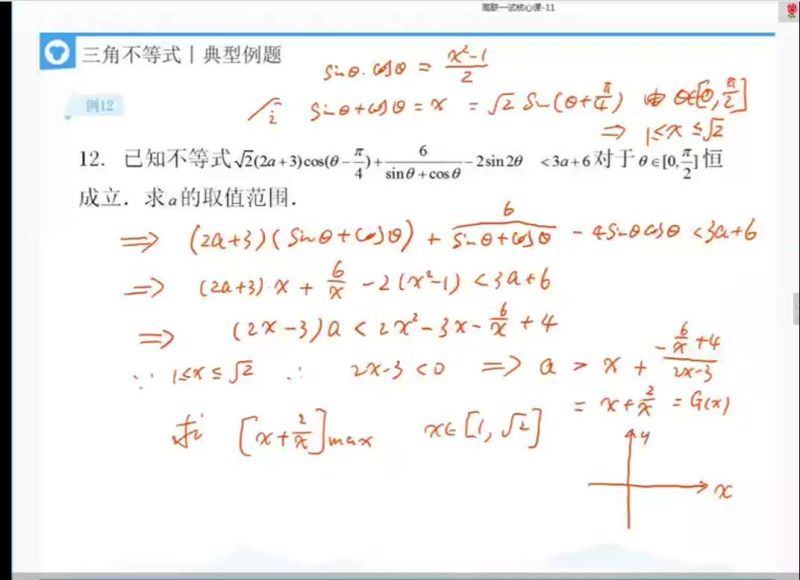 高联一试核心课-11
三角不等式 | 典型例题
sinθ·cosθ = (x²-1)/2
例12
记 sinθ+cosθ = x = √2 sin(θ+π/4) 由 θ∈[0,π/2]
⇒ 1≤x≤√2
12. 已知不等式√2(2a+3)cos(θ-π/4)+6/(sinθ+cosθ)-2sin2θ <3a+6对于θ∈[0,π/2]恒
成立. 求a的取值范围.
⇒ (2a+3)(sinθ+cosθ) + 6/(sinθ+cosθ) - 4sinθcosθ <3a+6
⇒ (2a+3)·x + 6/x - 2(x²-1) <3a+6
⇒ (2x-3)a < 2x²-3x-6/x+4
∵ 1≤x≤√2 ∴ 2x-3<0 ⇒ a > x + (-6/x+4)/(2x-3)
= x+2/x = G(x)
求 [x+2/x]max x∈[1,√2]
y
x